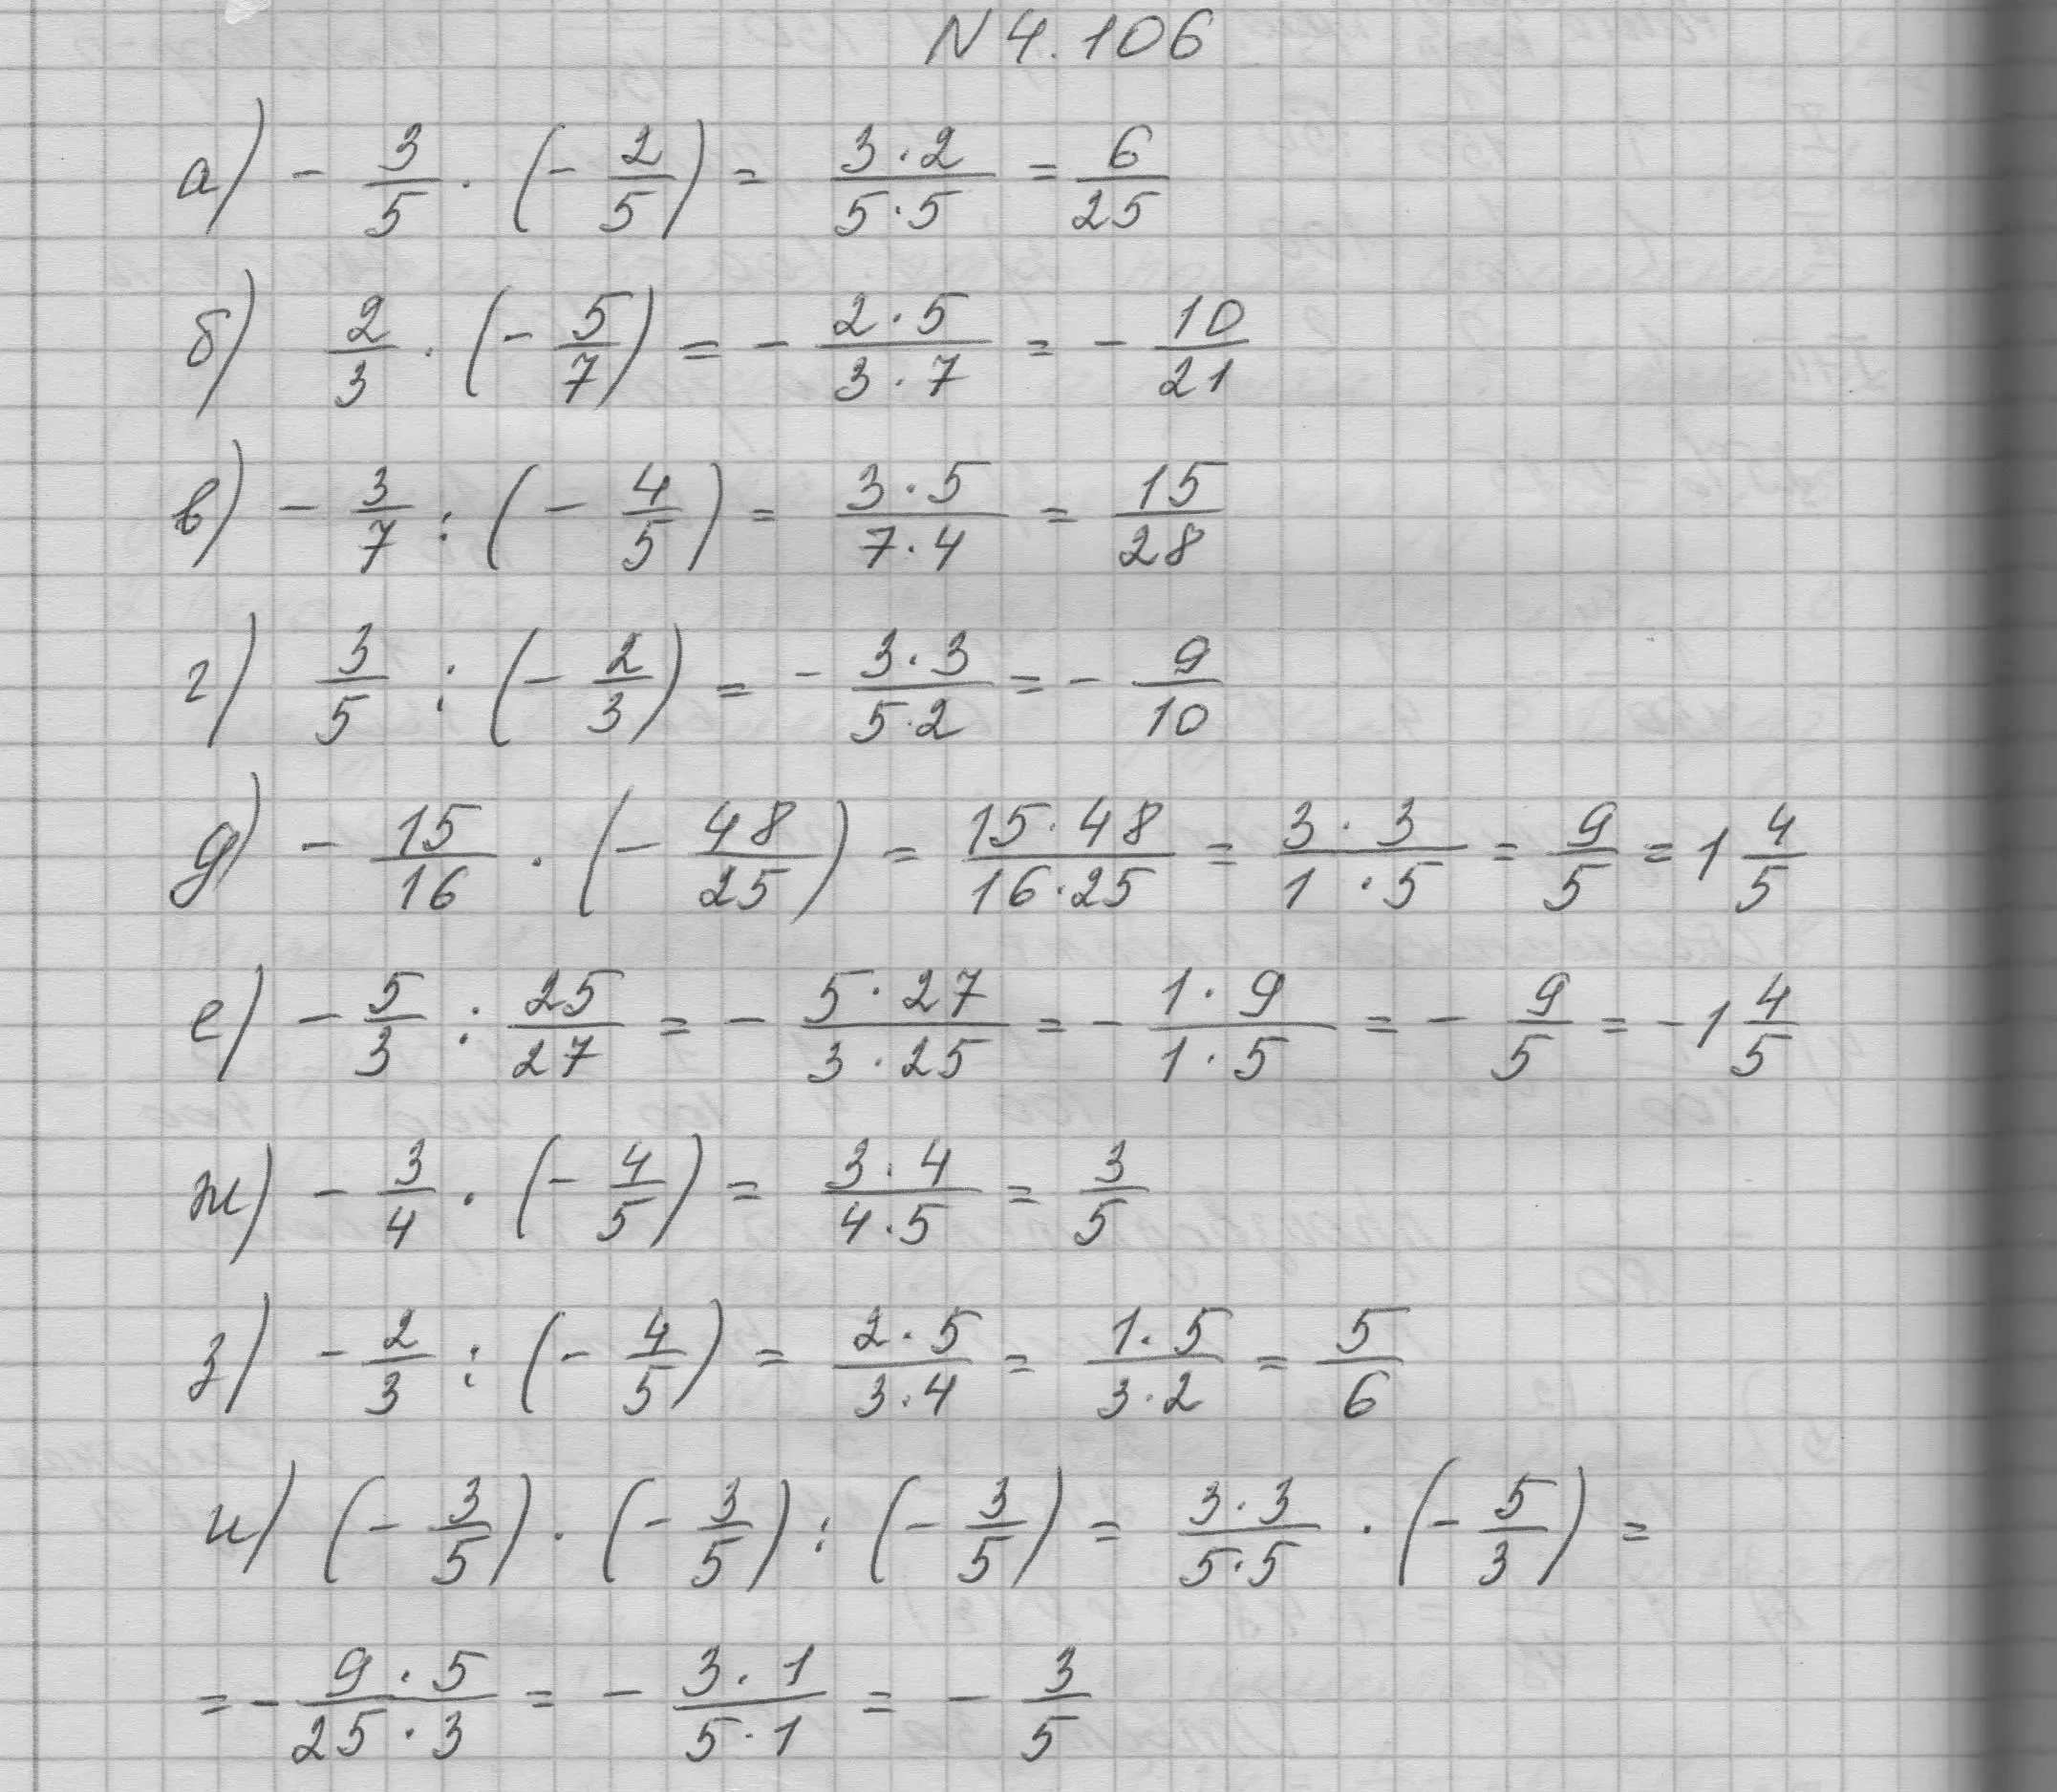 N 4.106
а) - 3/5 · (- 2/5) = 3·2/5·5 = 6/25
б) 2/3 · (- 5/7) = - 2·5/3·7 = - 10/21
в) - 3/7 : (- 4/5) = 3·5/7·4 = 15/28
г) 3/5 : (- 2/3) = - 3·3/5·2 = - 9/10
д) - 15/16 · (- 48/25) = 15·48/16·25 = 3·3/1·5 = 9/5 = 1 4/5
е) - 5/3 : 25/27 = - 5·27/3·25 = - 1·9/1·5 = - 9/5 = - 1 4/5
ж) - 3/4 · (- 4/5) = 3·4/4·5 = 3/5
з) - 2/3 : (- 4/5) = 2·5/3·4 = 1·5/3·2 = 5/6
и) (- 3/5) · (- 3/5) : (- 3/5) = 3·3/5·5 · (- 5/3) =
= - 9·5/25·3 = - 3·1/5·1 = - 3/5